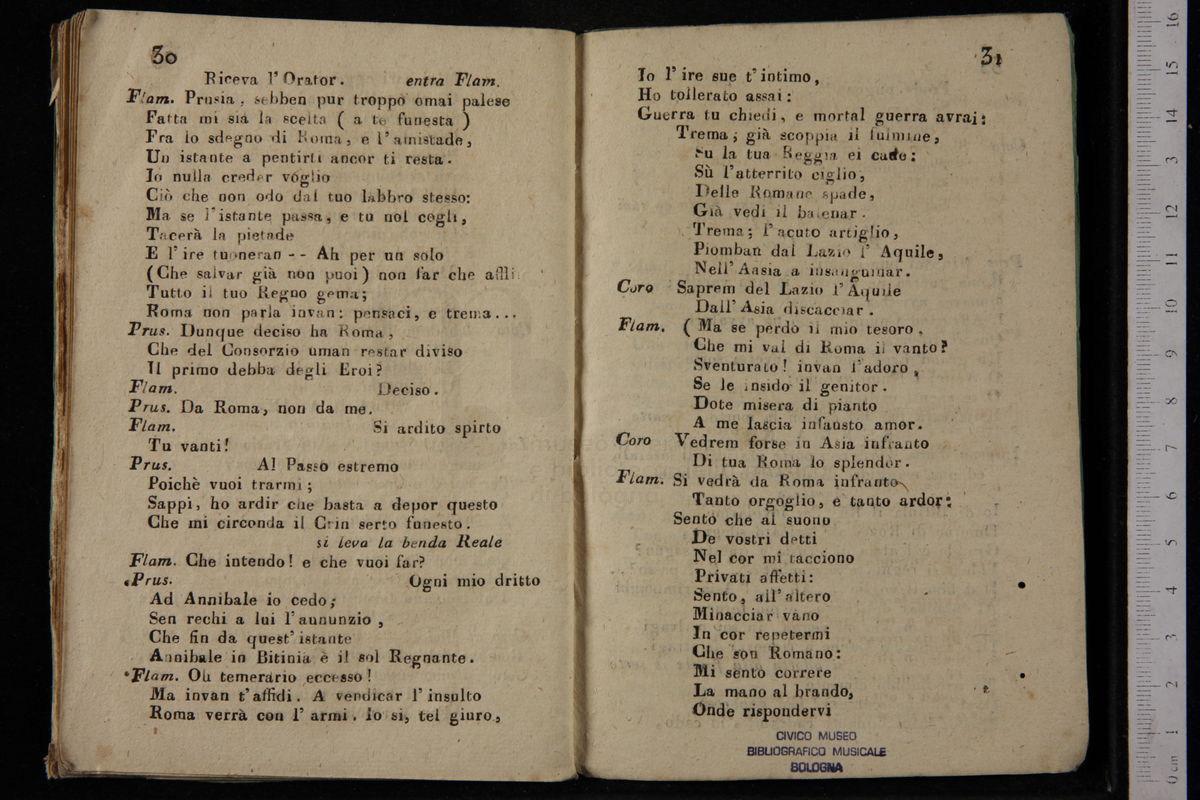 30
Riceva l' Orator. entra Flam.
Flam. Prusia, sebben pur troppo omai palese
Fatta mi sia la scelta ( a te funesta )
Fra lo sdegno di Roma, e l'amistade,
Un istante a pentirti ancor ti resta.
Io nulla creder voglio
Ciò che non odo dal tuo labbro stesso:
Ma se l'istante passa, e tu nol cogli,
Tacerà la pietade
E l' ire tuoneran -- Ah per un solo
(Che salvar già non puoi) non far che affli
Tutto il tuo Regno gema;
Roma non parla invan: pensaci, e trema...
Prus. Dunque deciso ha Roma,
Che del Consorzio uman restar diviso
Il primo debba degli Eroi?
Flam. Deciso.
Prus. Da Roma, non da me.
Flam. Si ardito spirto
Tu vanti!
Prus. Al Passo estremo
Poichè vuoi trarmi;
Sappi, ho ardir che basta a depor questo
Che mi circonda il Crin serto funesto.
si leva la benda Reale
Flam. Che intendo! e che vuoi far?
Prus. Ogni mio dritto
Ad Annibale io cedo;
Sen rechi a lui l'annunzio ,
Che fin da quest' istante
Annibale in Bitinia è il sol Regnante.
Flam. Oh temerario eccesso!
Ma invan t'affidi. A vendicar l'insulto
Roma verrà con l' armi. Io si, tel giuro,
31
Io l' ire sue t'intimo,
Ho tollerato assai:
Guerra tu chiedi, e mortal guerra avrai:
Trema; già scoppia il fulmine,
Su la tua Reggia ei cade:
Sù l'atterrito ciglio,
Delle Romane spade,
Già vedi il balenar.
Trema; l'acuto artiglio,
Piomban dal Lazio l' Aquile,
Nell' Aasia a insanguinar.
Coro Saprem del Lazio l'Aquile
Dall' Asia discacciar.
Flam. ( Ma se perdo il mio tesoro,
Che mi val di Roma il vanto?
Sventurato! invan l'adoro,
Se le insido il genitor.
Dote misera di pianto
A me lascia infausto amor.
Coro Vedrem forse in Asia infranto
Di tua Roma lo splendor.
Flam. Si vedrà da Roma infranto
Tanto orgoglio, e tanto ardor:
Sento che al suono
De vostri detti
Nel cor mi tacciono
Privati affetti:
Sento, all'altero
Minacciar vano
In cor repetermi
Che son Romano:
Mi sento correre
La mano al brando,
Onde rispondervi
CIVICO MUSEO
BIBLIOGRAFICO MUSICALE
BOLOGNA
0 cm 1 2 3 4 5 6 7 8 9 10 11 12 13 14 15 16